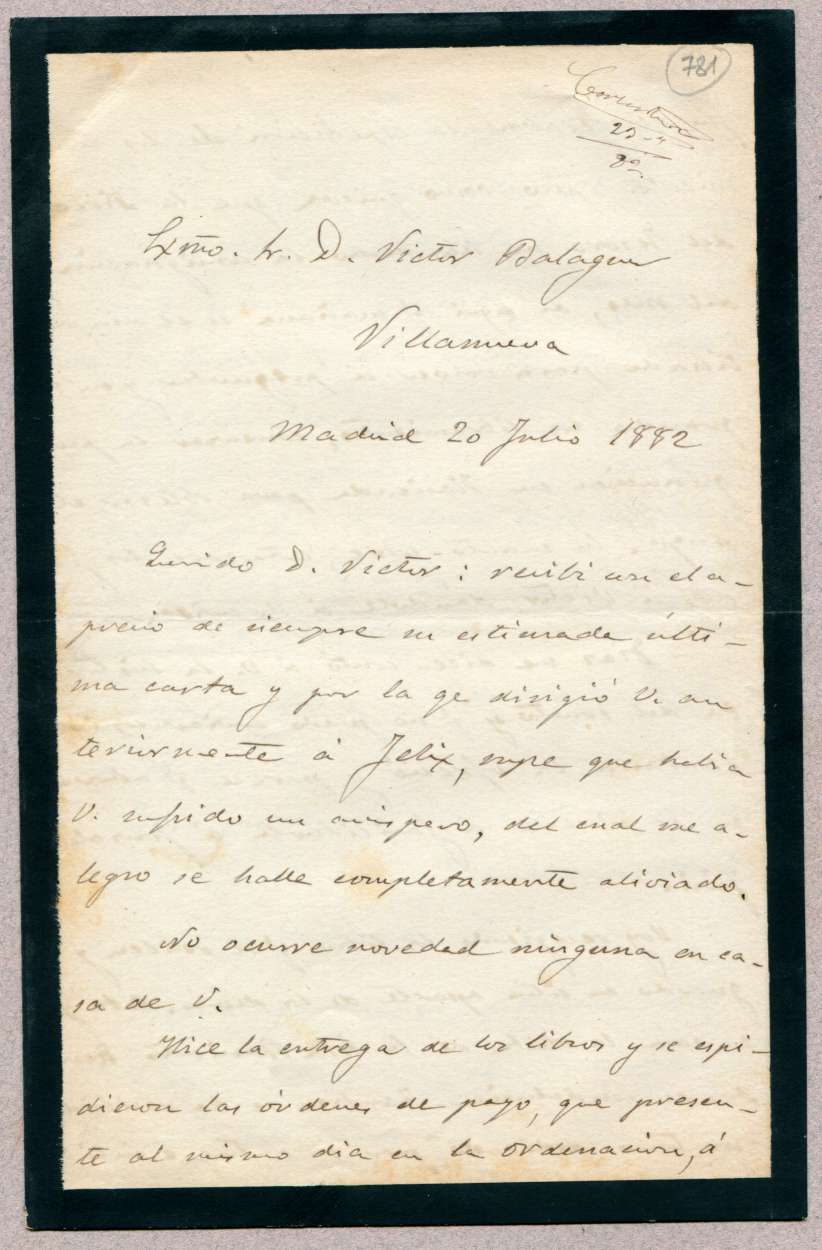 781
Contestada
Exmo. Sr. D. Victor Balaguer
Villanueva
Madrid 20 Julio 1882
Querido D. Victor: recibi con el a-
precio de siempre su estimada últi-
ma carta y por la qe dirigió V. an
teriormente á Felix, supe que habia
V. sufrido un avispero, del cual me a-
legro se halle completamente aliviado.
No ocurre novedad ninguna en ca-
sa de V.
Hice la entrega de los libros y se espi-
dieron las órdenes de pago, que presen-
te al mismo dia en la ordenacion, á